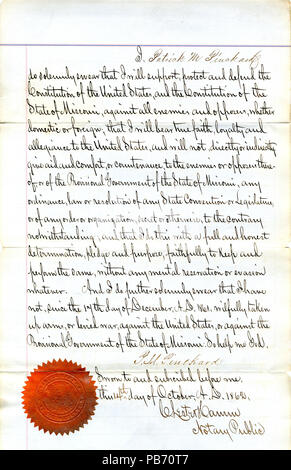 I, Patrick M Pinckard
do solemnly swear that I will support, protect and defend the
Constitution of the United States, and the Constitution of the
State of Missouri, against all enemies and opposers, whether
domestic or foreign, that I will bear true faith, loyalty, and
allegiance to the United States, and will not, directly or indirectly,
give aid and comfort, or countenance, to the enemies or opposers there-
of, or of the Provisional Government of the State of Missouri, any
ordinance, law or resolution of any State Convention or Legislature,
or of any order or organization, secret or otherwise, to the contrary
notwithstanding; and that I do this with a full and honest
determination, pledge and purpose, faithfully to keep and
perform the same, without any mental reservation or evasion
whatever. And I do further solemnly swear that I have
not, since the 17th day of December, A.D. 1861, wilfully, taken
up arms, or levied war, against the United States, or against the
Provisional Government of the State of Missouri: So help me God.
P. M. Pinckard.
Sworn to and subscribed before me,
this day of October, A.D. 1862,
Notary Public
alamy
Image ID: PB70T7
www.alamy.com